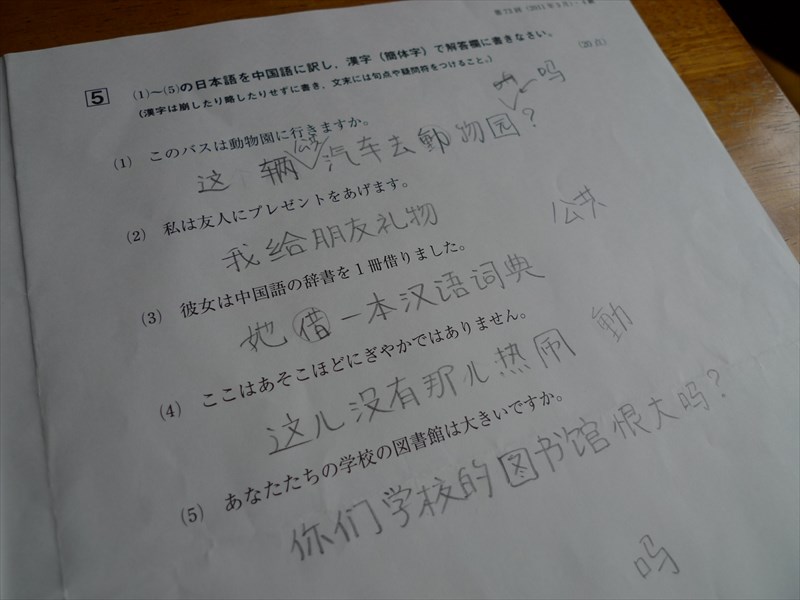 第73回（2011年3月）・4級
5 (1)～(5)の日本語を中国語に訳し、漢字（簡体字）で解答欄に書きなさい。
（漢字は崩したり略したりせずに書き、文末には句点や疑問符をつけること。） (20点)
吗
(1) このバスは動物園に行きますか。
公共
这辆汽车去動物园？
(2) 私は友人にプレゼントをあげます。
我给朋友礼物
公共
(3) 彼女は中国語の辞書を1冊借りました。
她借一本汉语词典
(4) ここはあそこほどにぎやかではありません。
動
这儿没有那儿热闹
(5) あなたたちの学校の図書館は大きいですか。
你们学校的图书馆恨大吗？
吗